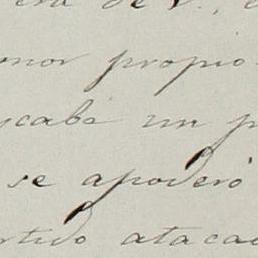 era de V.,
onor propio
scaba un p
se apoderó
rtido ataca